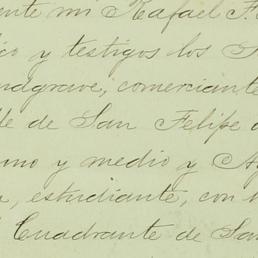 ente mi Rafael F.
ico y testigos los
nagrave, comerciante
le de San Felipe
imo y medio y Ag
a, estudiante, con
Cuadrante de San